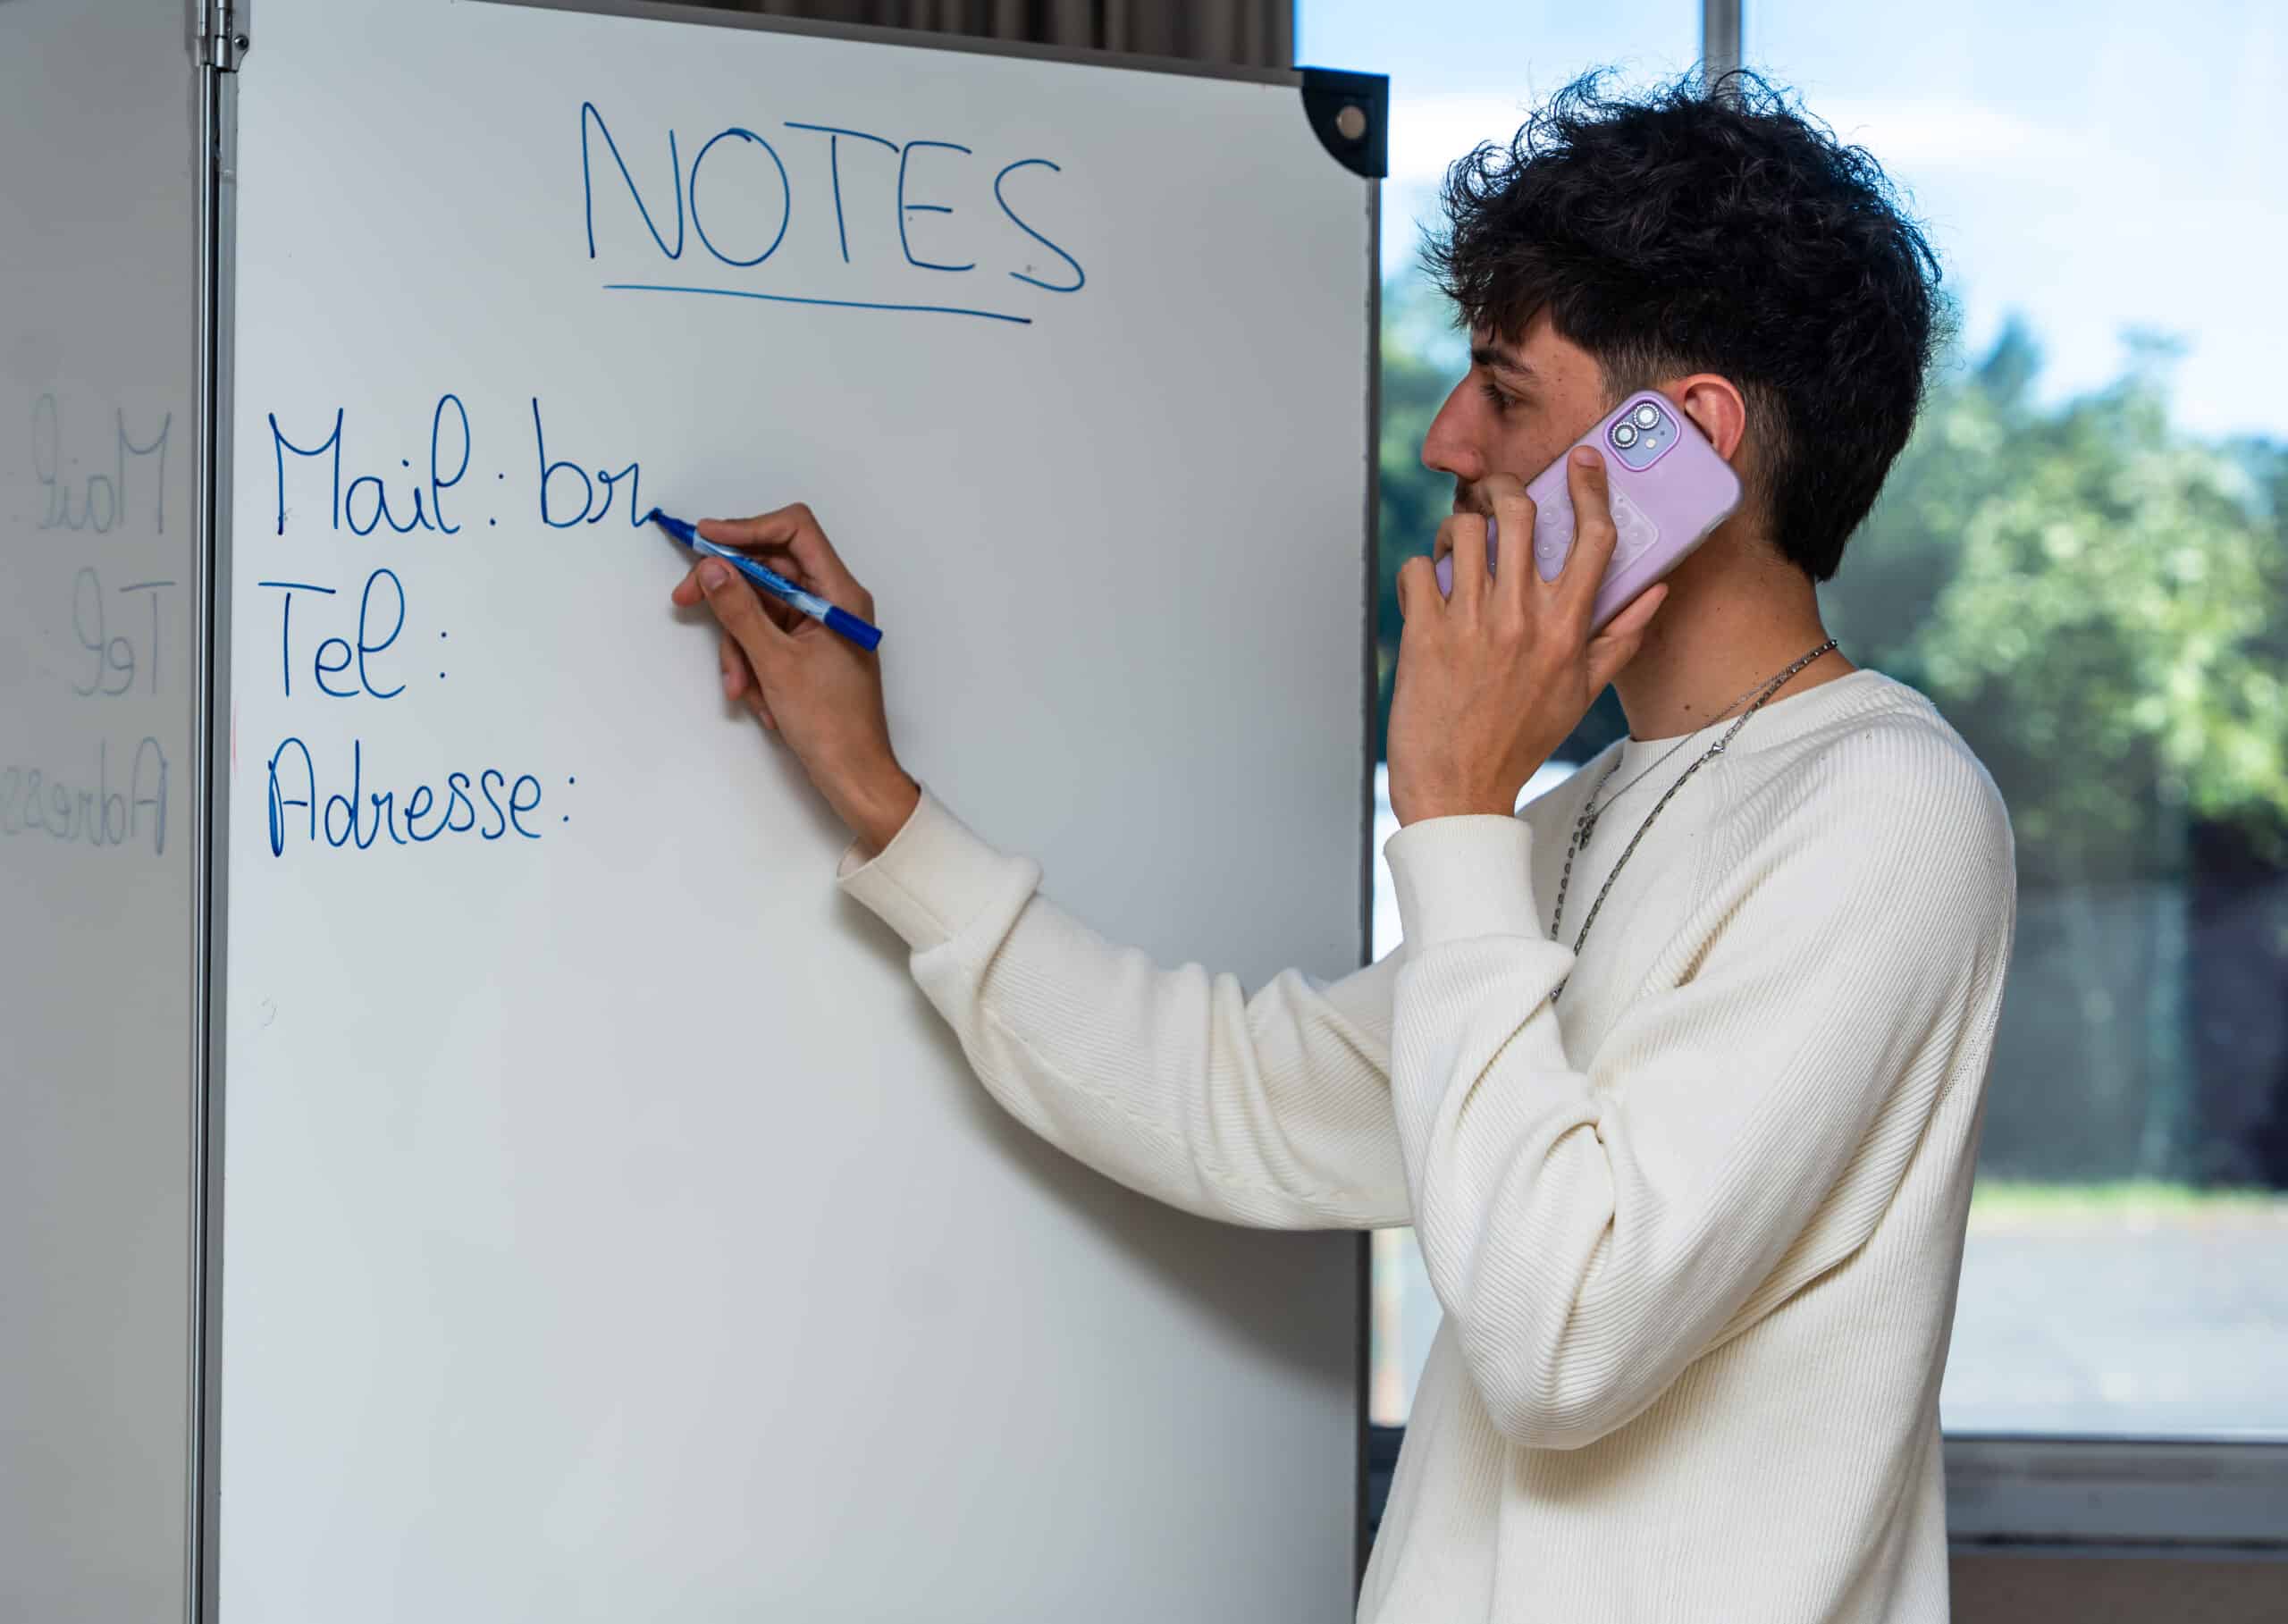 NOTES
Mail: br
Tel:
Adresse: